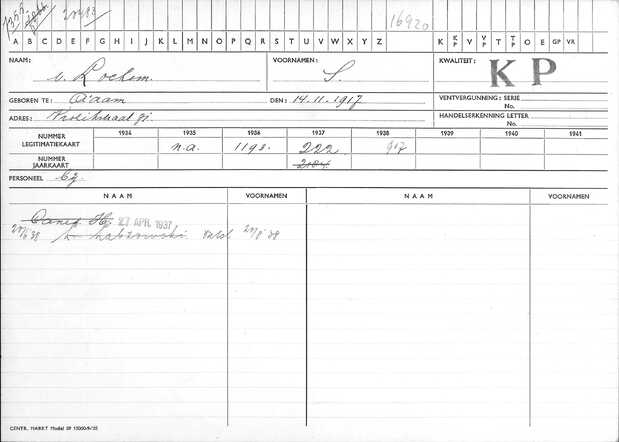 16920
A B C D E F G H I J K L M N O P Q R S T U V W X Y Z K K P V V P T T P O E GP VR
NAAM: v. Lochem. VOORNAMEN: S. KWALITEIT: K P
GEBOREN TE: A'dam DEN: 14.11.1917 VENTVERGUNNING: SERIE
No.
ADRES: 91. HANDELSERKENNING LETTER
No.
1934 1935 1936 1937 1938 1939 1940 1941
NUMMER LEGITIMATIEKAART n.a. 1193. 222 917
NUMMER JAARKAART 2184
PERSONEEL
NAAM VOORNAMEN NAAM VOORNAMEN
H. 27 APR. 1937
CENTR. MARKT Model